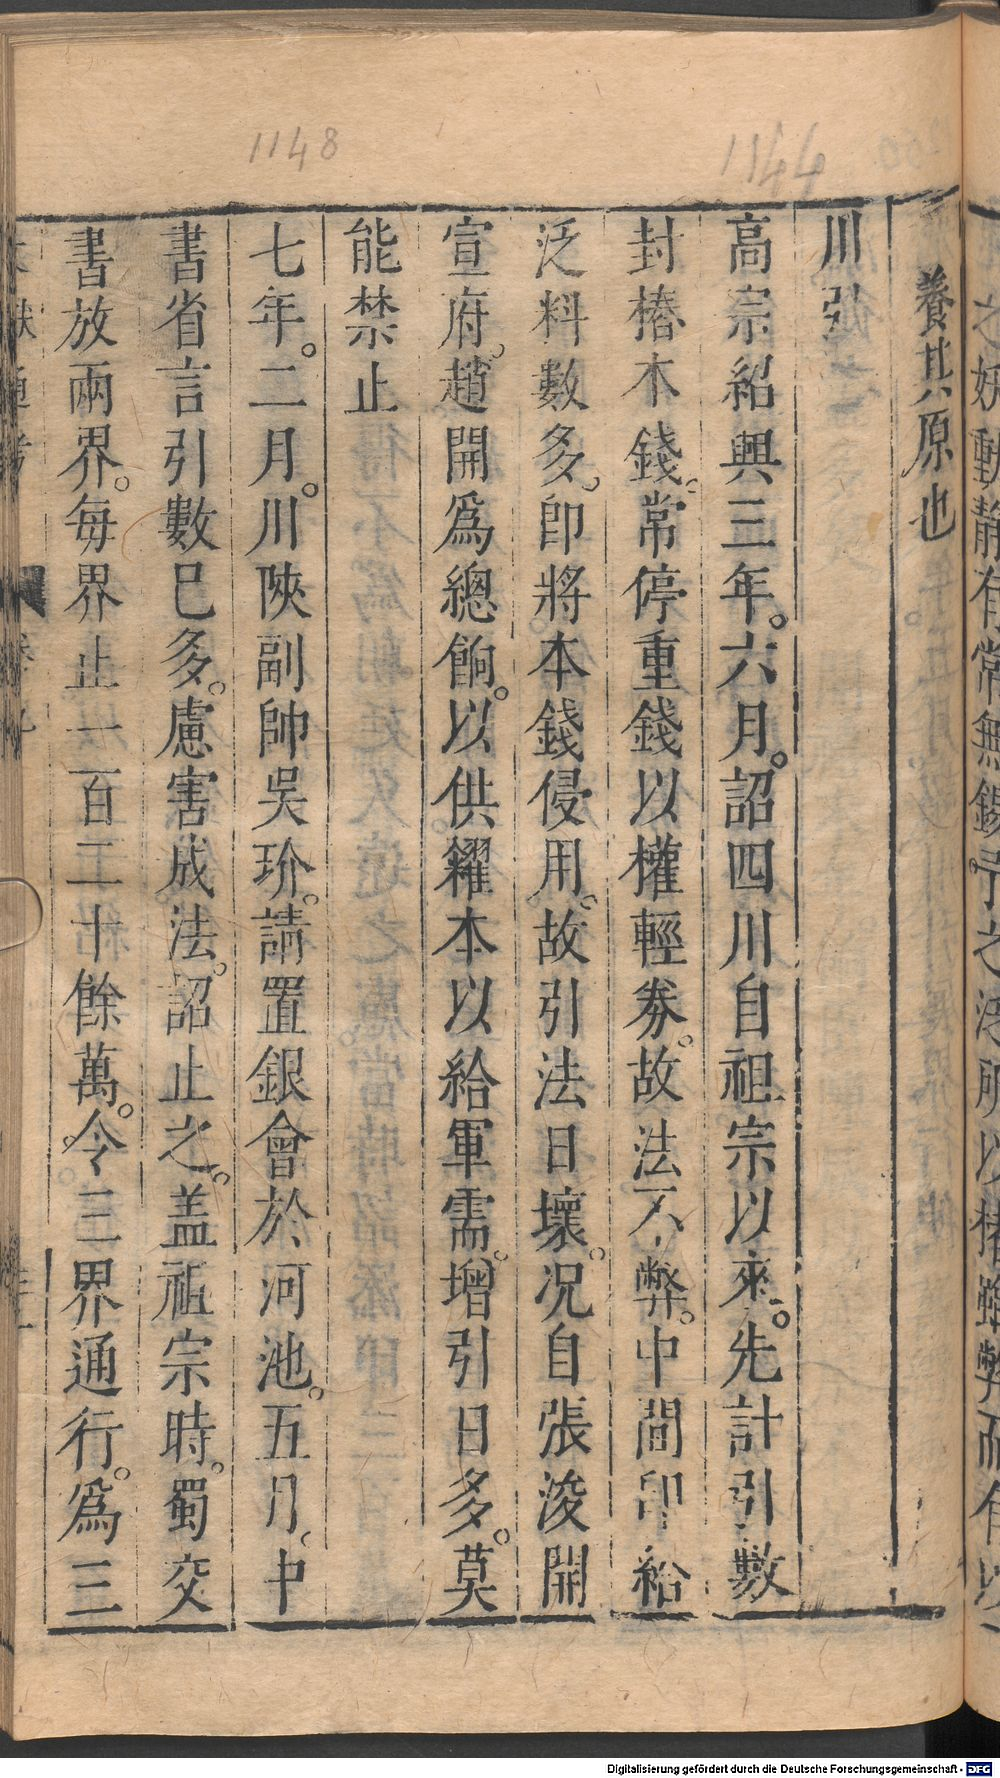 1144
1148
養其原也
川引
高宗紹興三年。六月。詔四川自祖宗以來。先計引數
封樁本錢。常停重錢以權輕券。故法不弊。中間印給
泛料數多。卽將本錢侵用。故引法日壞。况自張浚開
宣府。趙開爲總餉。以供糴本以給軍需。增引日多。莫
能禁止
七年。二月。川陝副帥吳玠。請置銀會於河池。五月。中
書省言引數已多。慮害成法。詔止之。盖祖宗時。蜀交
書放兩界。每界止一百二十餘萬。今三界通行。爲三
Digitalisierung gefördert durch die Deutsche Forschungsgemeinschaft - DFG